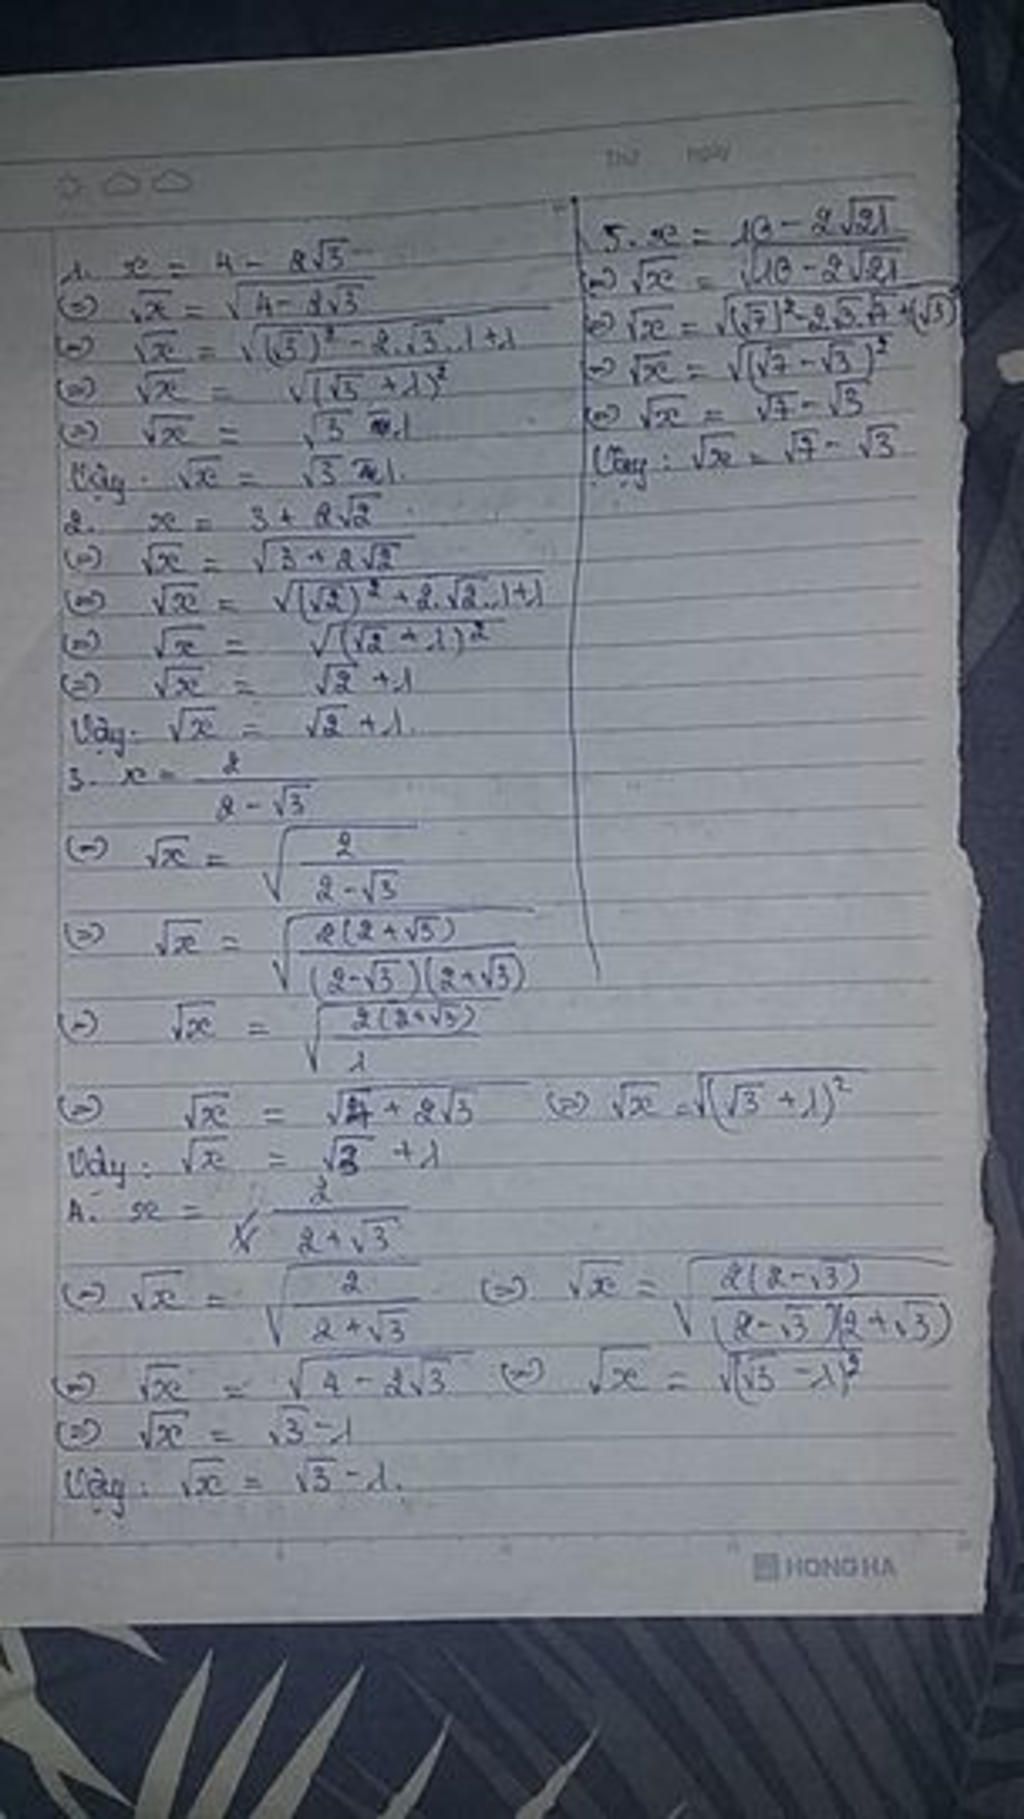 Thứ ngày
1. x = 4 - 2√3
(=) √x = √(4 - 2√3)
(=) √x = √((√3)² - 2.√3.1+1)
(=) √x = √((√3 + 1)²)
(=) √x = √3 - 1
Vậy: √x = √3 - 1.
2. x = 3 + 2√2
(=) √x = √(3 + 2√2)
(=) √x = √((√2)² + 2.√2.1+1)
(=) √x = √((√2 + 1)²)
(=) √x = √2 + 1
Vậy: √x = √2 + 1.
3. x = 2/(2 - √3)
(=) √x = √(2/(2 - √3))
(=) √x = √(2(2 + √3)/((2-√3)(2+√3)))
(=) √x = √(2(2+√3)/1)
(=) √x = √(4 + 2√3) (=) √x = √((√3 + 1)²)
Vậy: √x = √3 + 1
4. x = 2/(2 + √3)
(=) √x = √(2/(2 + √3)) (=) √x = √(2(2-√3)/((2-√3)(2+√3)))
(=) √x = √(4 - 2√3) (=) √x = √((√3 - 1)²)
(=) √x = √3 - 1
Vậy: √x = √3 - 1.
5. x = 10 - 2√21
(=) √x = √(10 - 2√21)
(=) √x = √((√7)² - 2√3.√7 + (√3)
(=) √x = √((√7 - √3)²)
(=) √x = √7 - √3
Vậy: √x = √7 - √3
HONG HA